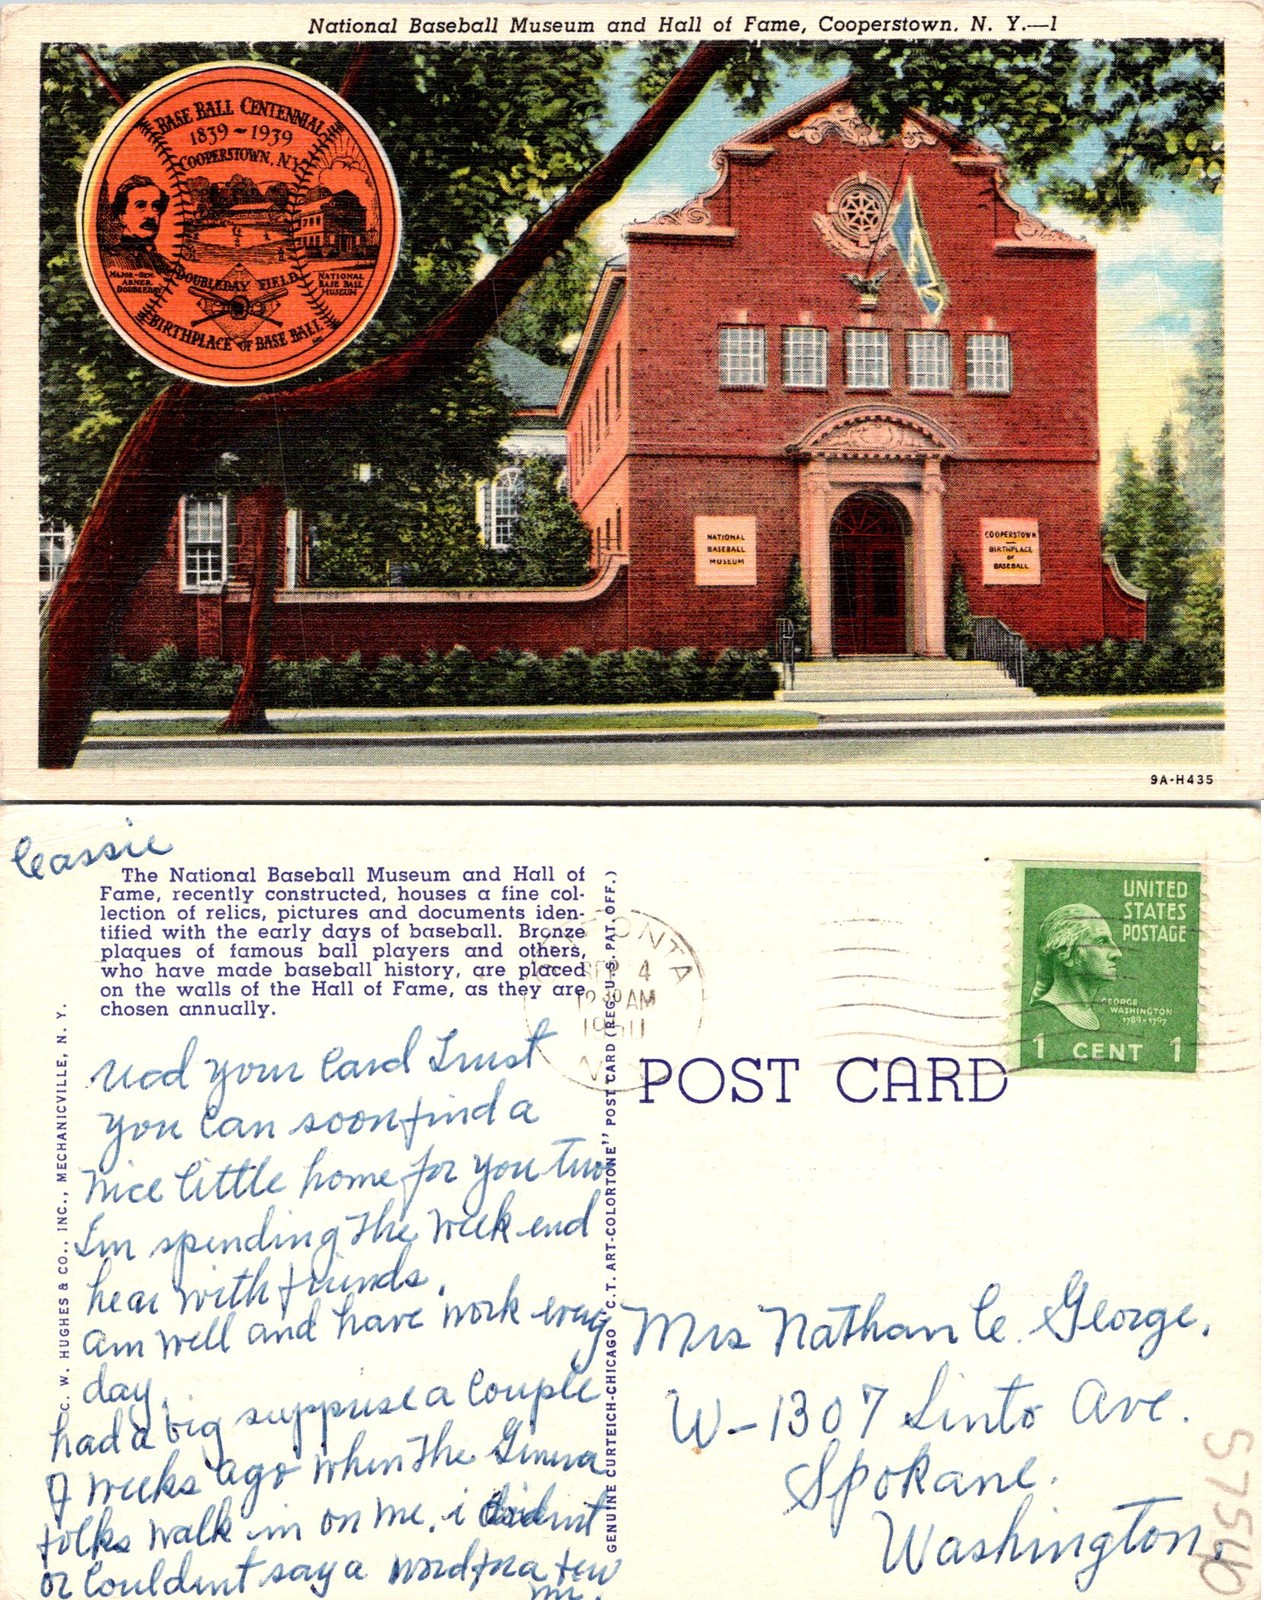 National Baseball Museum and Hall of Fame, Cooperstown, N. Y.—1
BASE BALL CENTENNIAL
1839-1939
COOPERSTOWN, N.Y.
MAJOR-GEN.
ABNER
DOUBLEDAY
DOUBLEDAY FIELD
NATIONAL
BASE BALL
MUSEUM
BIRTHPLACE OF BASE BALL
NATIONAL
BASEBALL
MUSEUM
COOPERSTOWN
BIRTHPLACE
OF
BASEBALL
9A-H435
Cassie
The National Baseball Museum and Hall of
Fame, recently constructed, houses a fine col-
lection of relics, pictures and documents iden-
tified with the early days of baseball. Bronze
plaques of famous ball players and others,
who have made baseball history, are placed
on the walls of the Hall of Fame, as they are
chosen annually.
your Card Trust
you can soon find a
nice little home for you two
Im spending the week end
hear with friends.
am well and have work every
day.
had a big supprise a couple
weeks ago when the Geneva
folks walk in on me. i didnt
or couldent say a word for a few
C. W. HUGHES & CO., INC., MECHANICVILLE, N. Y.
GENUINE CURTEICH-CHICAGO "C.T. ART-COLORTONE" POST CARD (REG. U.S. PAT. OFF.)
ONEONTA
SEP 4
12 30 AM
N.Y.
UNITED
STATES
POSTAGE
GEORGE
WASHINGTON
1789-1797
1 CENT 1
POST CARD
Mrs Nathan C. George.
W-1307 Sinto Ave.
Spokane.
Washington.
5756